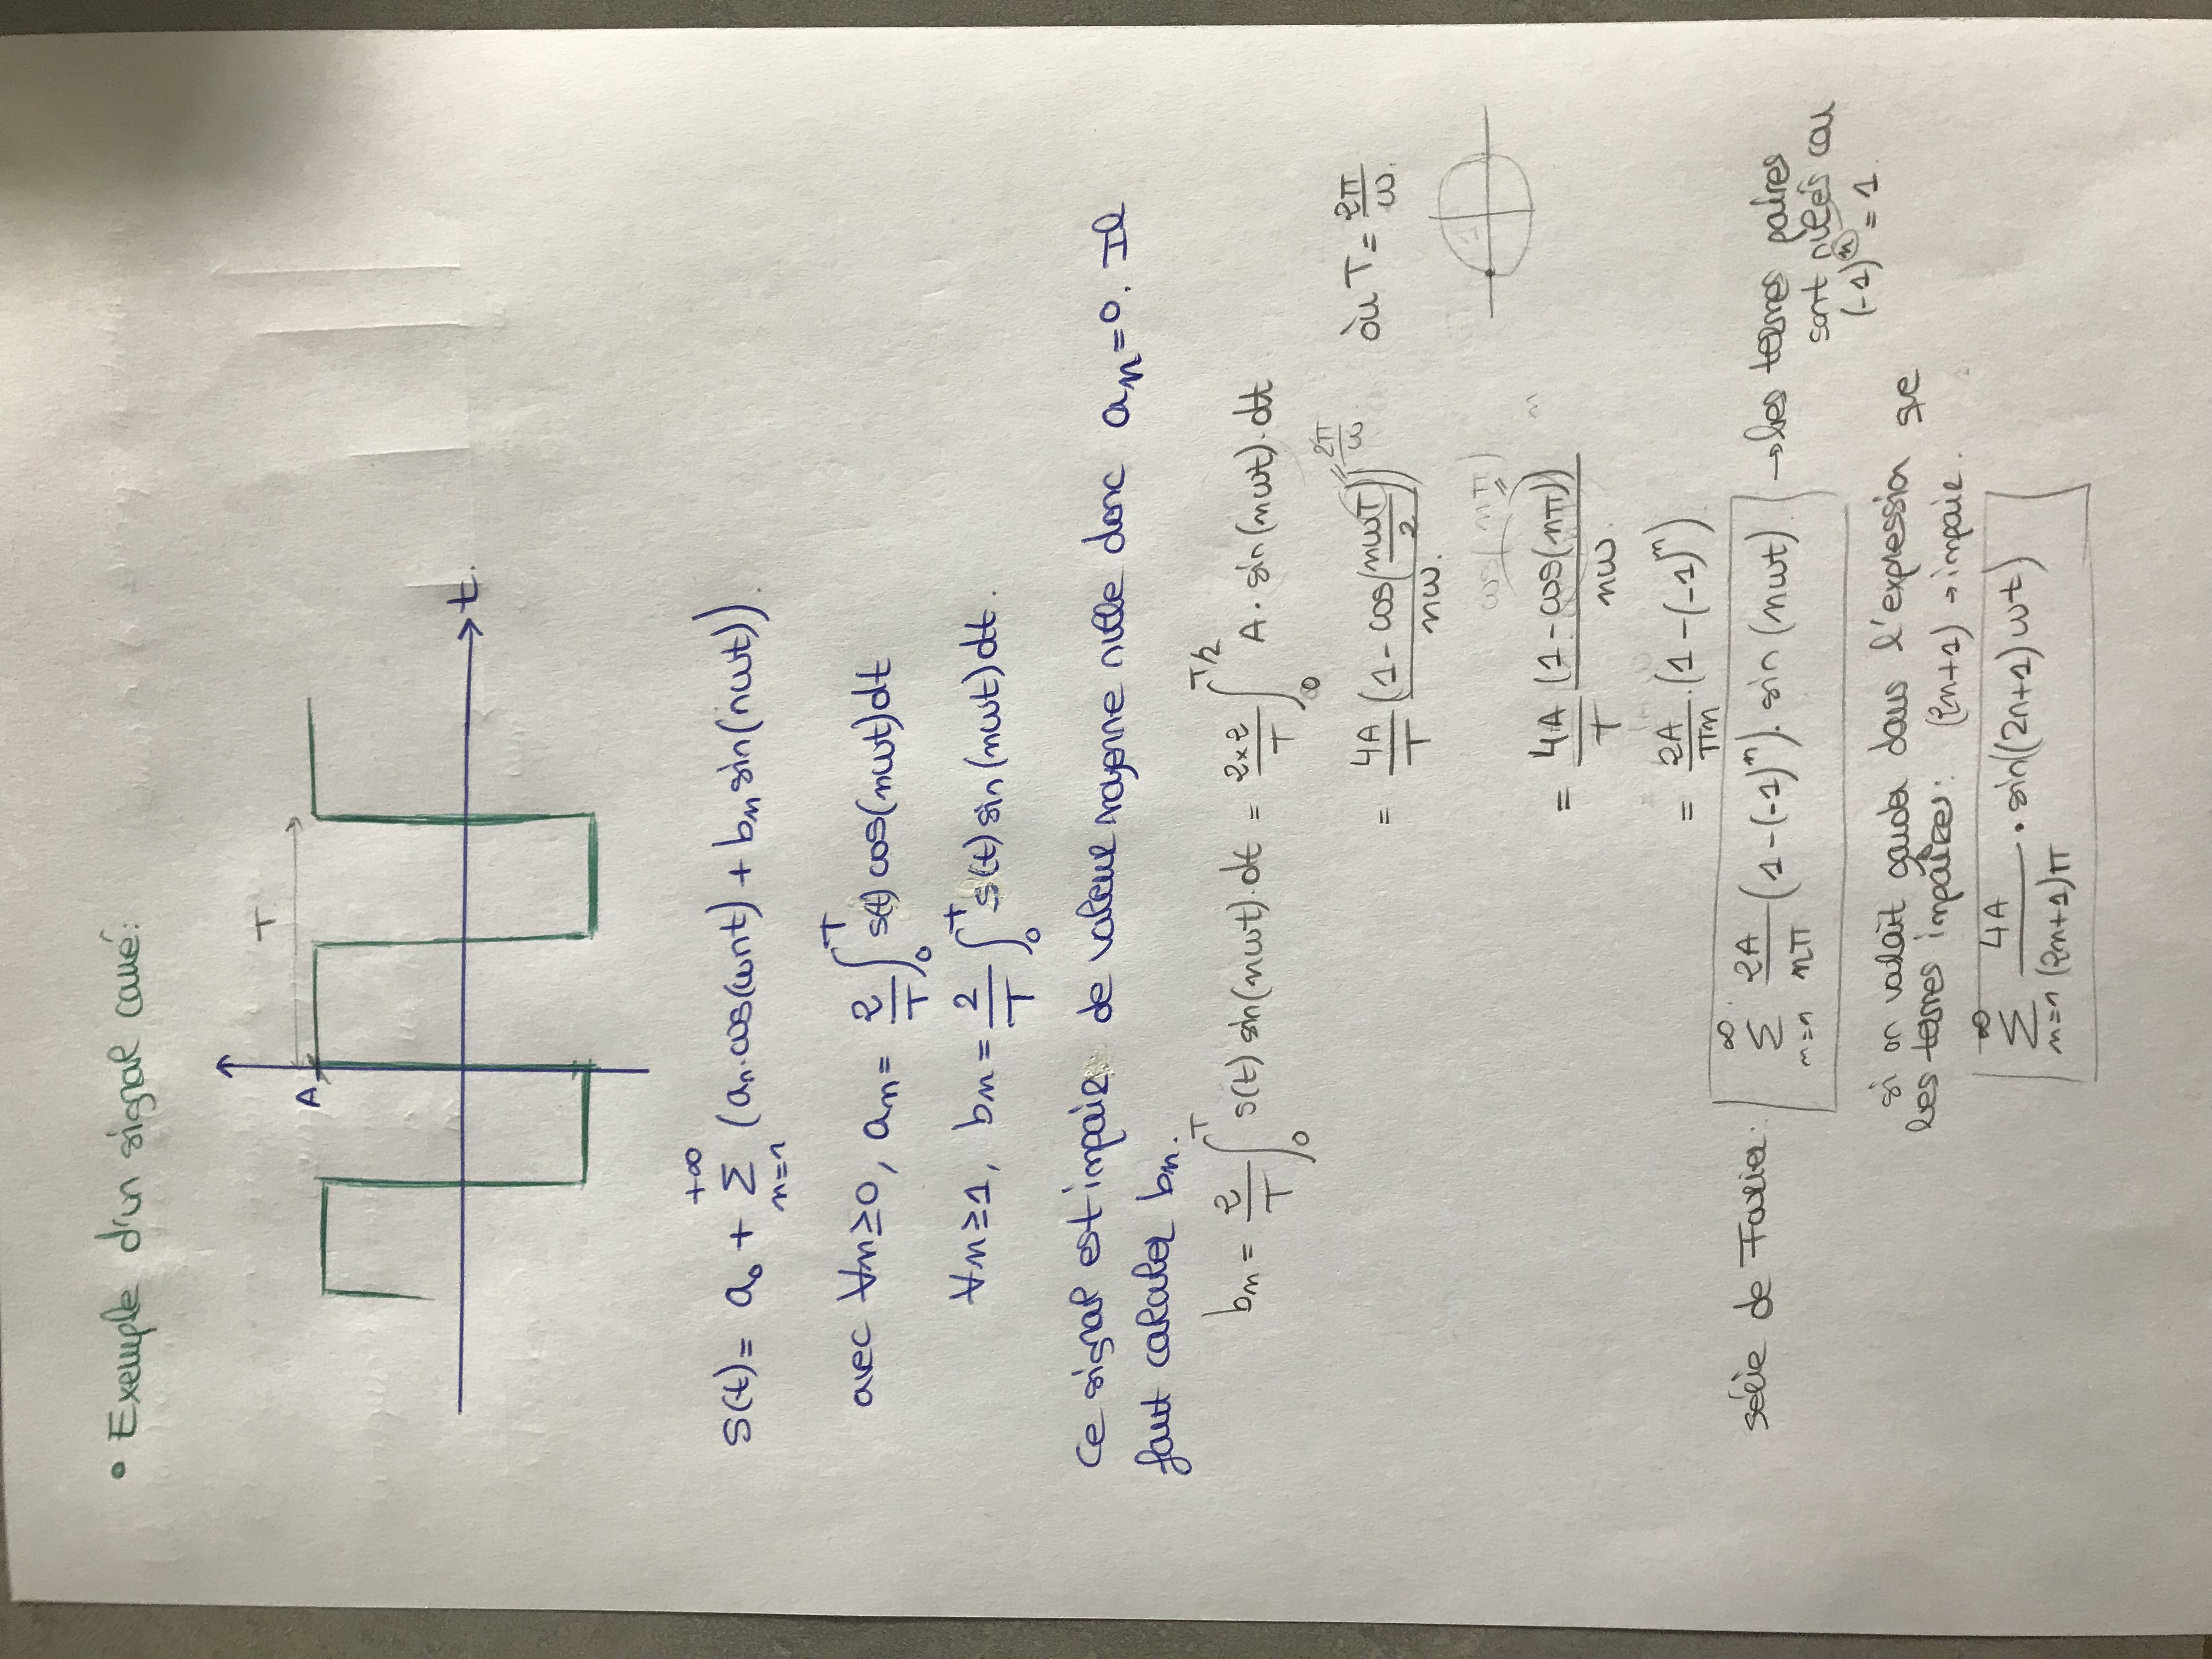 • Exemple d'un signal carré:
T
A
t.
s(t) = a₀ + Σ_{n=1}^{+∞} (aₙ.cos(ωnt) + bₙ sin(nωt)).
avec ∀n≥0, aₙ = 2/T ∫₀^T s(t) cos(nωt)dt
∀n≥1, bₙ = 2/T ∫₀^T s(t) sin(nωt)dt.
Ce signal est impair de valeur moyenne nulle donc aₙ=0. Il
faut calculer bₙ.
bₙ = 2/T ∫₀^T s(t) sin(nωt).dt = 2×2/T ∫₀^{T/2} A. sin(nωt).dt
= 4A/T (1-cos(nωT/2))/nω. = 2π/ω où T = 2π/ω.
cos(nπ)
= 4A/T (1-cos(nπ))/nω.
= 2A/πn.(1-(-1)ⁿ)
série de Fourier: Σ_{n=1}^{∞} 2A/nπ (1-(-1)ⁿ). sin(nωt). → les termes paires
sont nulles car
(-1)ⁿ = 1.
si on voulait garder dans l'expression que
les termes impaires: (2n+1) → impair.
Σ_{n=1}^{∞} 4A/(2n+1)π . sin((2n+1)ωt)